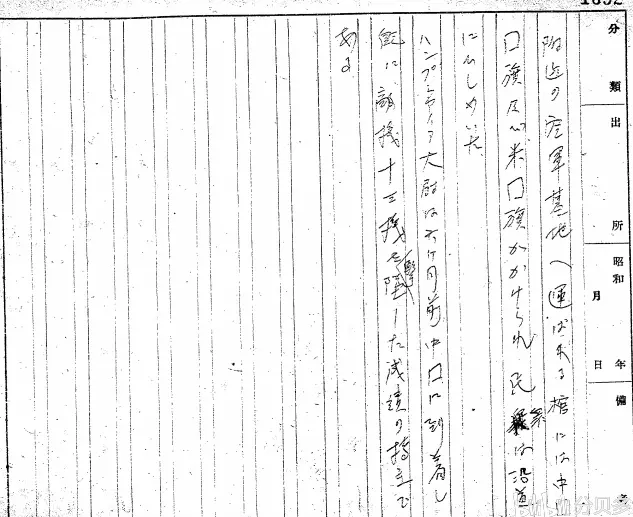 1692
分類
出所
昭和 年 月 日
備考
附近の空軍基地へ運ばれる棺には中
口旗及び米口旗がかけられ民衆は沿道
にひしめいた
大尉は六ケ月前中口に到着し
既に敵機十三機を撃墜した成績の持主で
ある